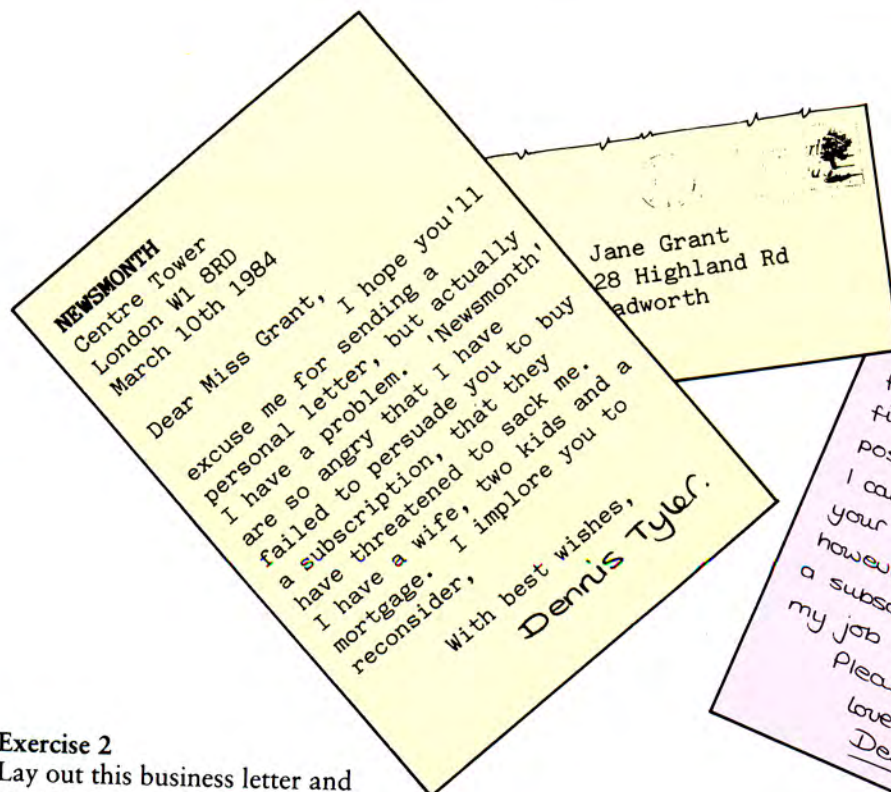 NEWSMONTH
Centre Tower
London W1 8RD
March 10th 1984
Dear Miss Grant,
I hope you'll
excuse me for sending a
personal letter, but actually
I have a problem. 'Newsmonth'
are so angry that I have
failed to persuade you to buy
a subscription, that they
have threatened to sack me.
I have a wife, two kids and a
mortgage. I implore you to
reconsider,
With best wishes,
Dennis Tyler.
Jane Grant
28 Highland Rd
adworth
I
your
however
a subsc
my job
Plea
love
De
Exercise 2
Lay out this business letter and